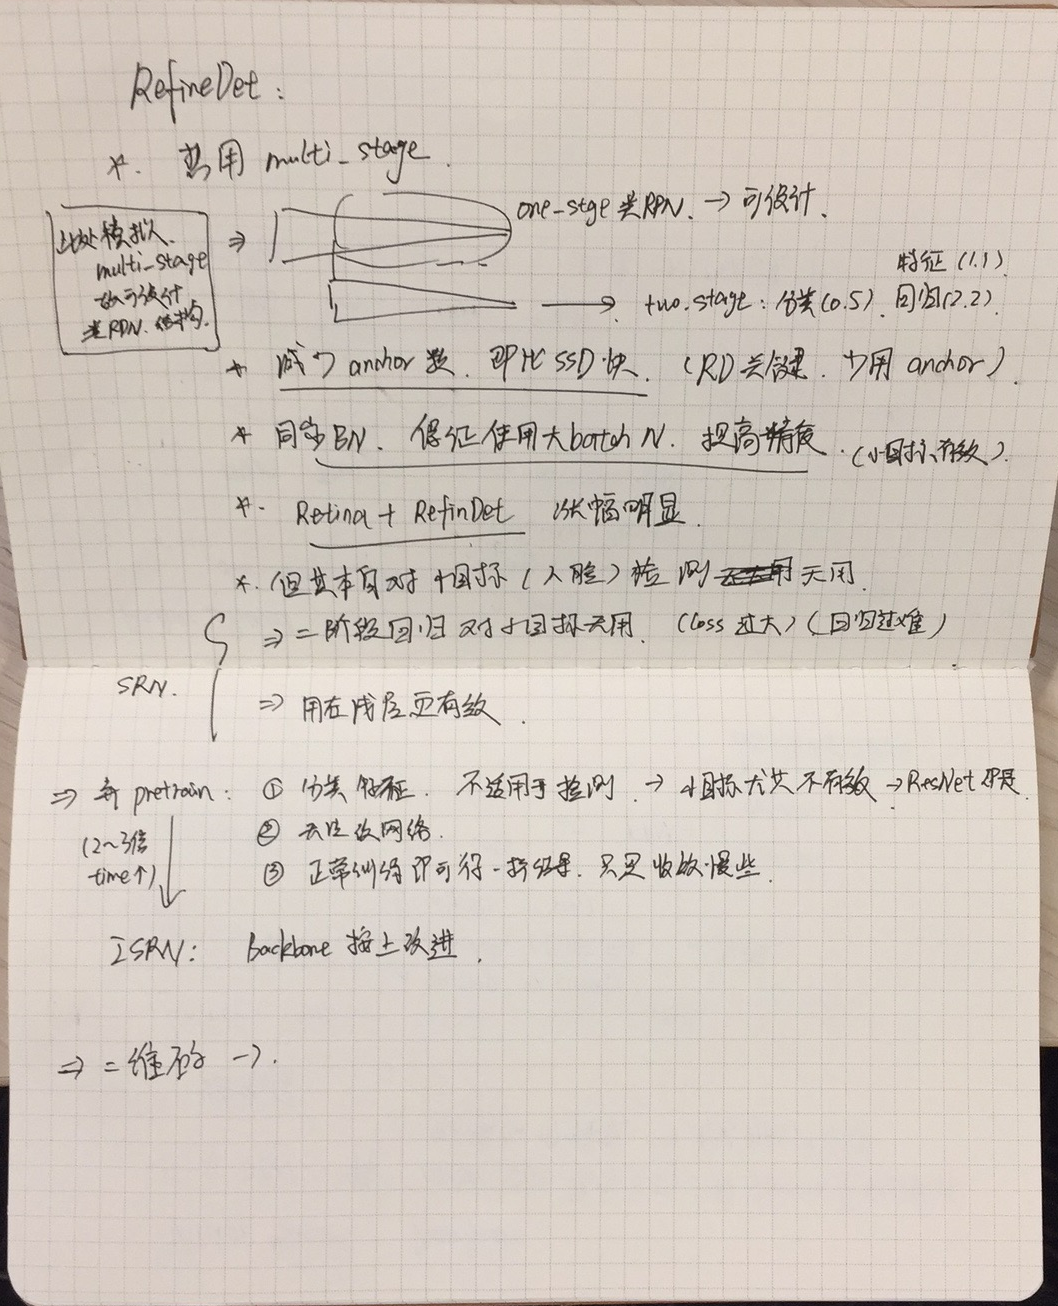 RefineDet:
*. 云用 multi_stage.
此处模拟
multi_stage
故可设计
类RPN. 结构.
⇒
one_stge 类RPN. → 可设计.
特征 (1.1)
→ two.stage: 分类(0.5). 回归(2.2)
* 减少 anchor 数. 即比 SSD 快. (RD 关键. 少用 anchor).
* 同步BN. 保证使用大batch N. 提高精度. (小目标有效).
*. Retina + RefinDet 涨幅明显.
*. 但其本身对小目标(人脸)检测无用.
SRN.
⇒ 二阶段回归对小目标无用. (loss 过大) (回归过难)
⇒ 用在浅层更有效.
⇒ 弃 pretrain: ① 分类特征. 不适用于检测. → 小目标尤其不有效 → ResNet
② 无法改网络.
③ 正常训练即可得一标结果. 只是收敛慢些.
(2~3倍
time↑)
ISRN: Backbone 按上改进.
⇒ 二维码 →.